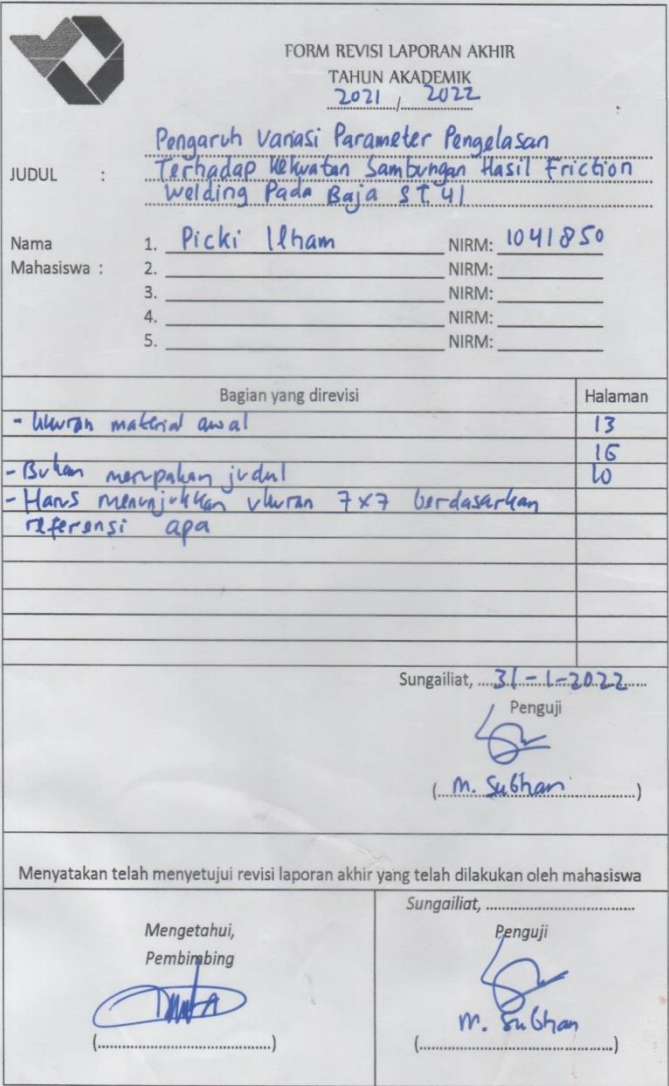 FORM REVISI LAPORAN AKHIR
TAHUN AKADEMIK
2021 / 2022
JUDUL : Pengaruh Variasi Parameter Pengelasan
Terhadap Kekuatan Sambungan Hasil Friction
Welding Pada Baja ST.41
Nama Mahasiswa :
1. Picki Ilham NIRM: 1041850
2. NIRM:
3. NIRM:
4. NIRM:
5. NIRM:
Bagian yang direvisi Halaman
- Ukuran material awal 13
16
- Bukan merupakan judul 10
- Harus menunjukkan ukuran 7x7 berdasarkan
referensi apa
Sungailiat, 31-1-2022
Penguji
(M. Subhan)
Menyatakan telah menyetujui revisi laporan akhir yang telah dilakukan oleh mahasiswa
Mengetahui,
Pembimbing
(..............................)
Sungailiat, ..............................
Penguji
M. Subhan
(..............................)